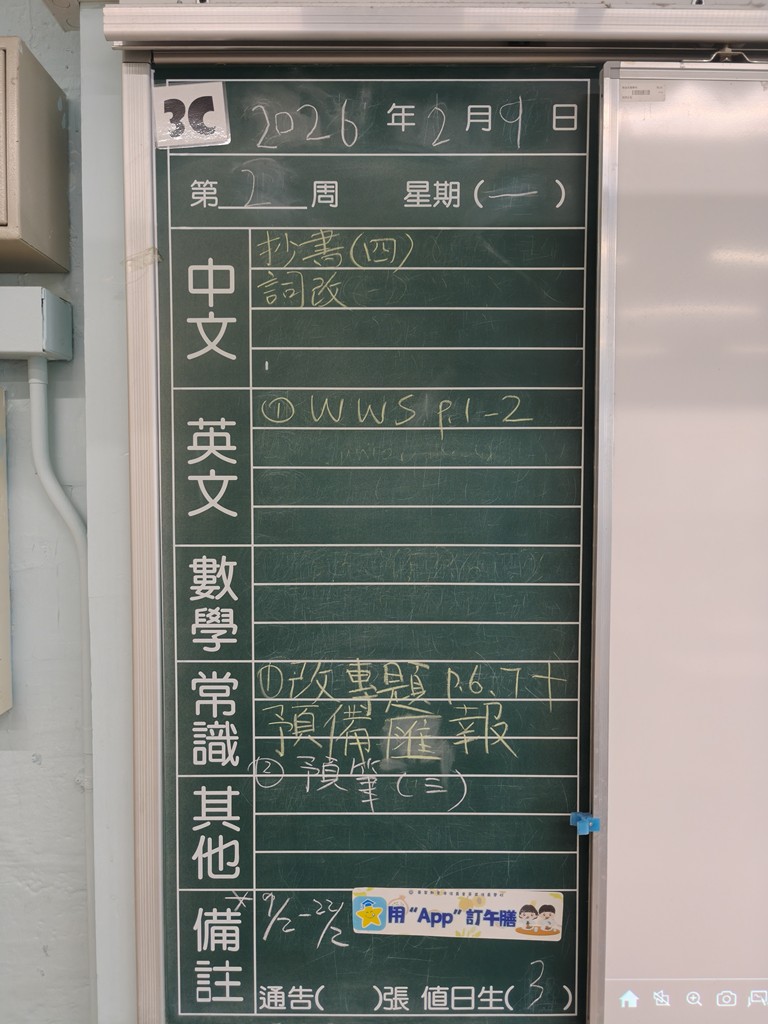 3C
2026年2月9日
第2周 星期(一)
中文
抄書(四)
詞改
英文
① WWS p.1-2
數學
常識
①改專題 p.6.7+
預備匯報
②預筆(三)
其他
備註
* 9/2-22/2
用“App”訂午膳
通告( )張 值日生(3)